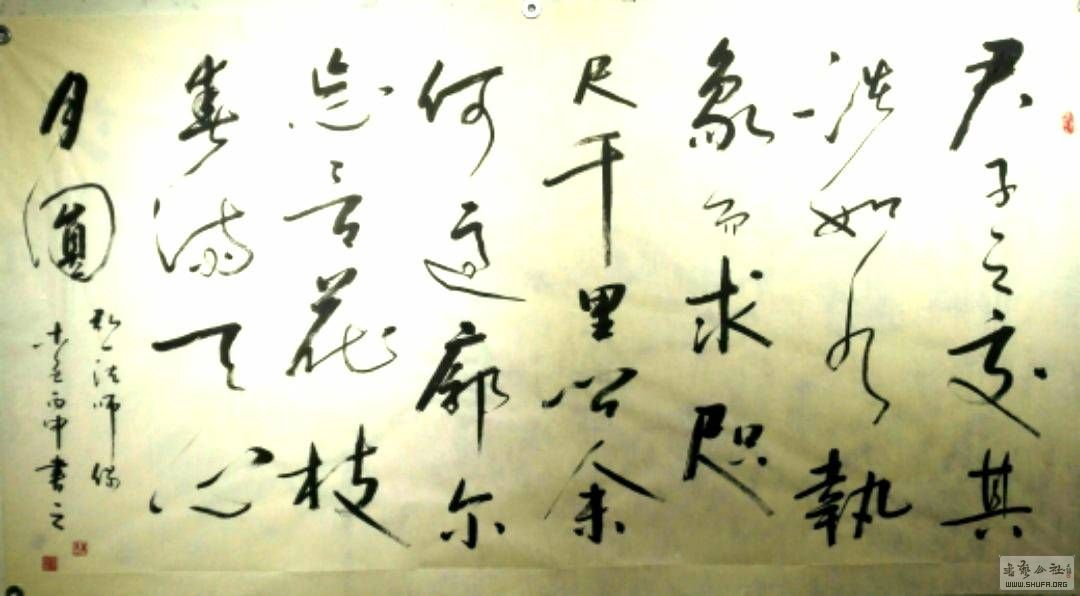 君子之交其
淡如水執
象而求咫
尺千里问余
何适廓尔
忘言花枝
春满天心
月圓
弘一法师偈
丙申書之
書藝公社
WWW.SHUFA.ORG